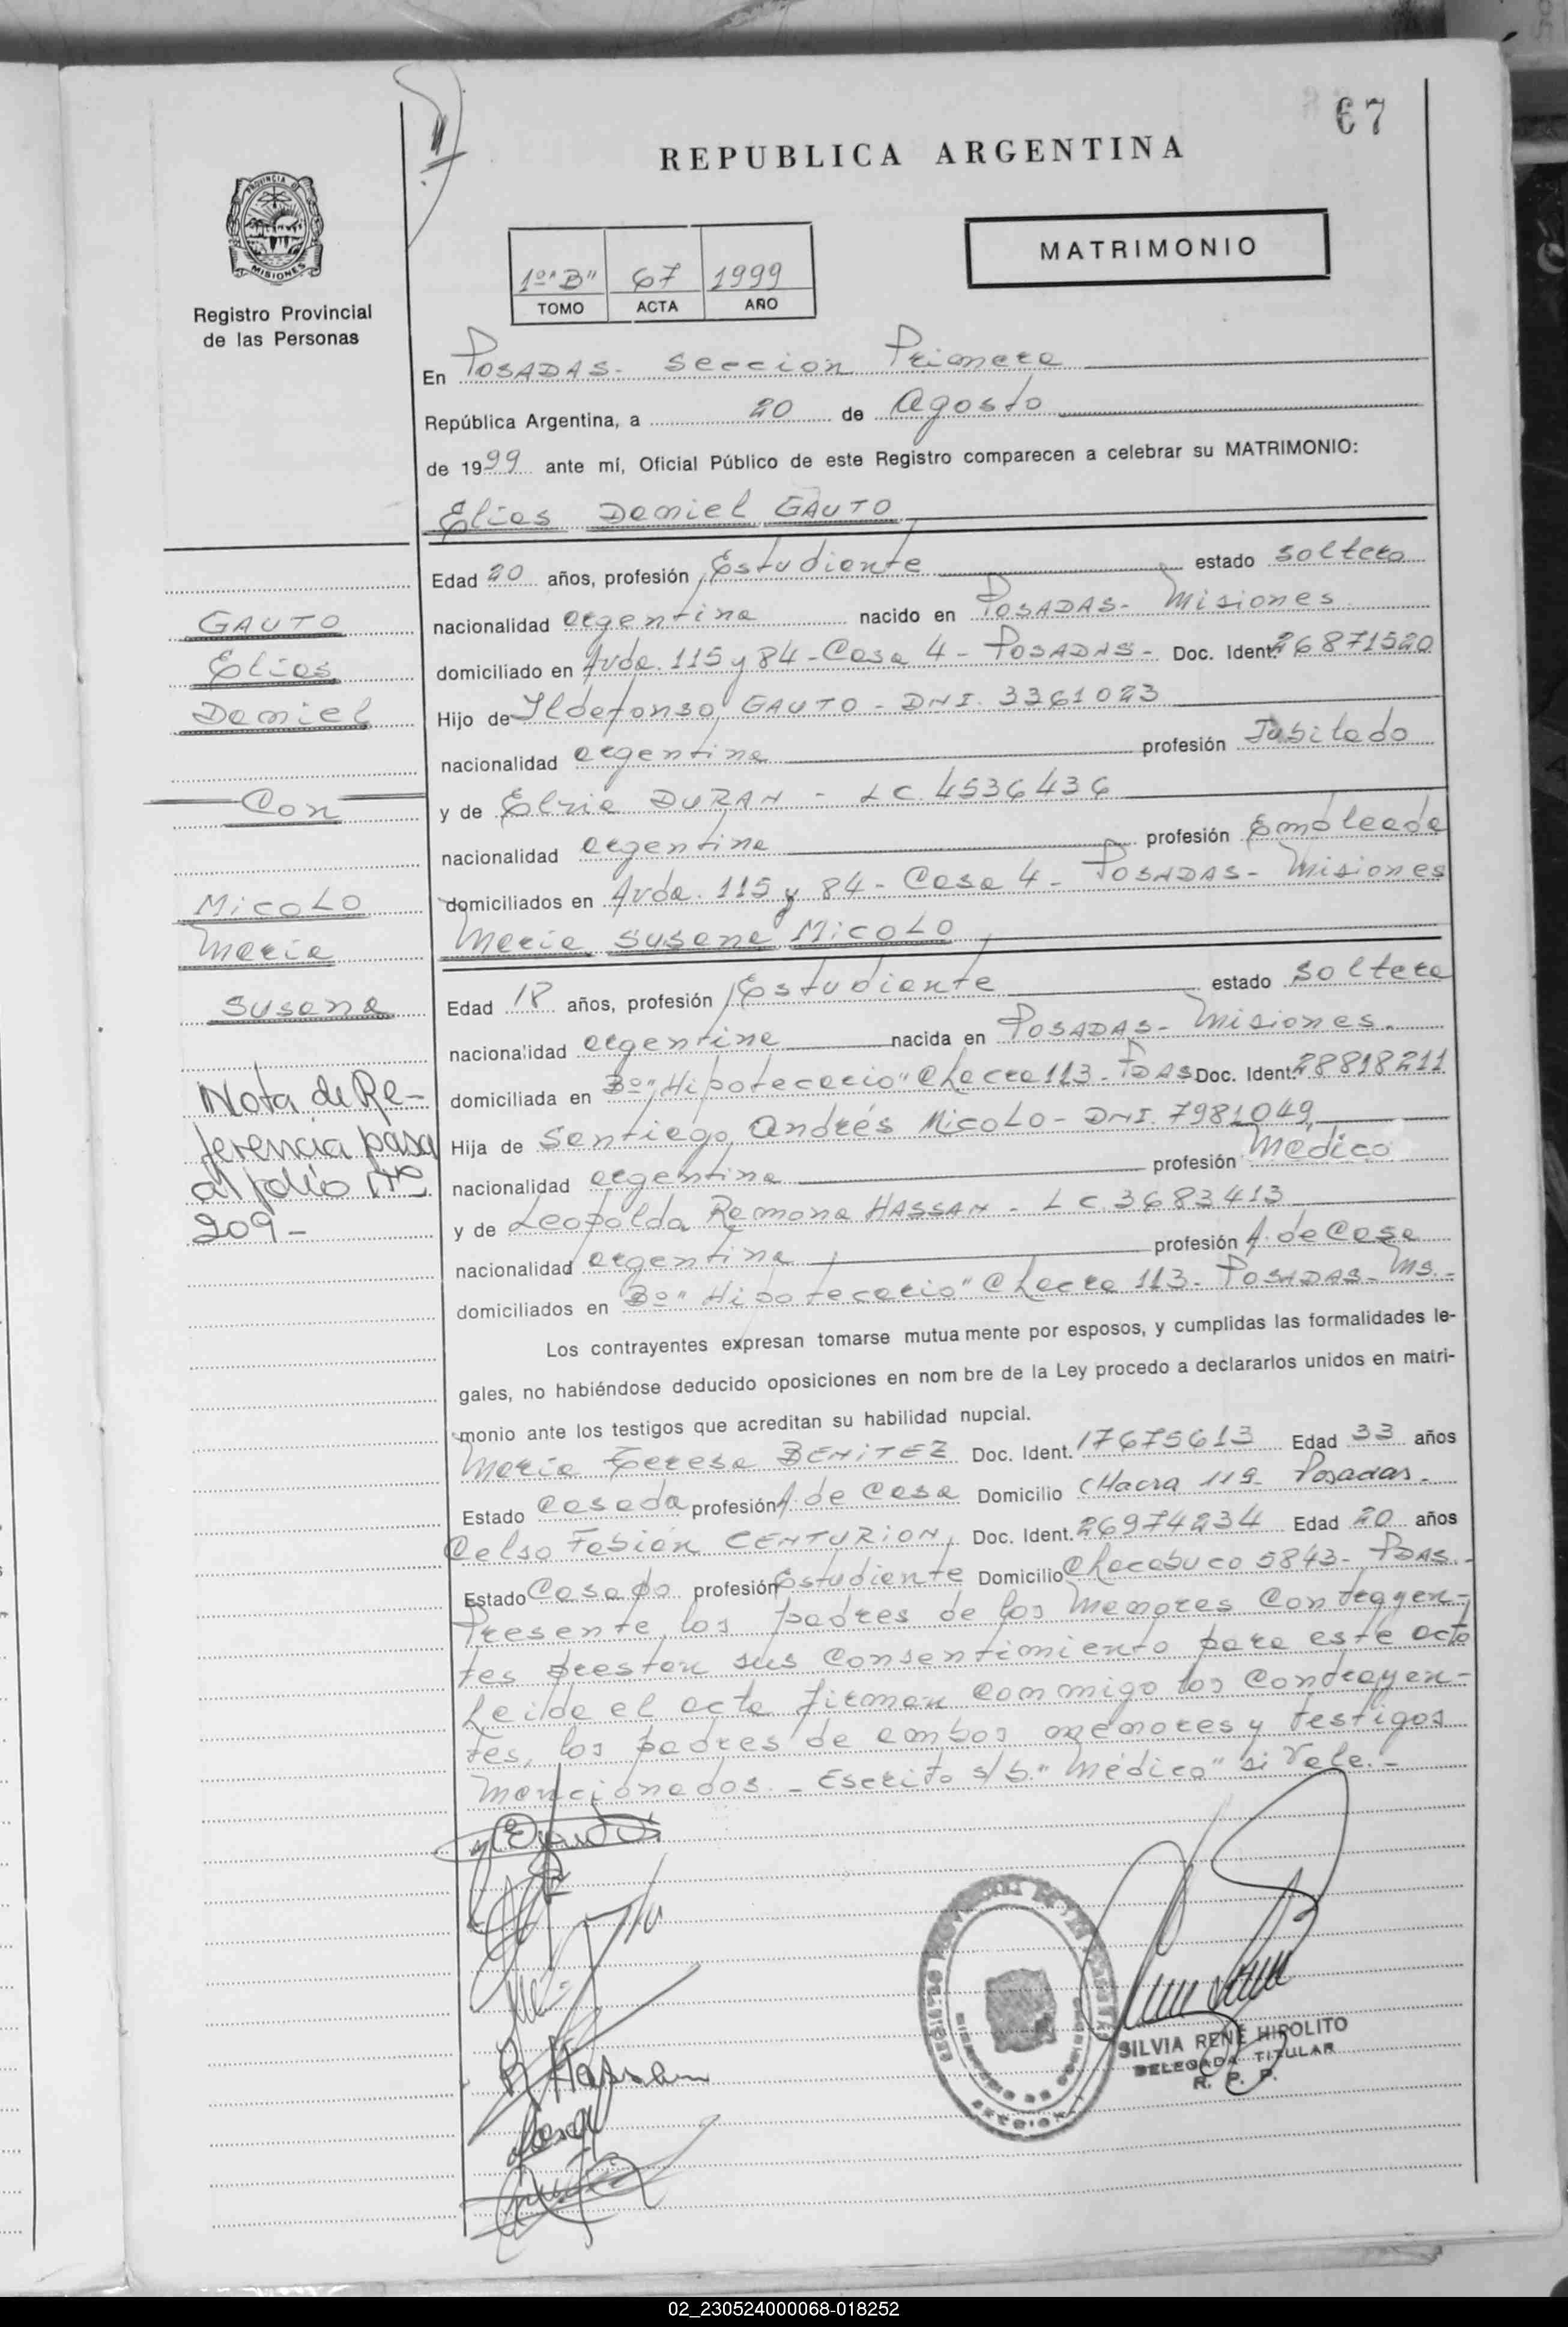 67
REPUBLICA ARGENTINA
PROVINCIA DE
MISIONES
Registro Provincial
de las Personas
1º "B" 67 1999
TOMO ACTA AÑO
MATRIMONIO
En POSADAS- Sección Primera
República Argentina, a 20 de Agosto
de 1999 ante mí, Oficial Público de este Registro comparecen a celebrar su MATRIMONIO:
Elias Daniel GAUTO
Edad 20 años, profesión Estudiante estado soltero
nacionalidad argentina nacido en POSADAS- Misiones
domiciliado en Avda. 115 y 84 - Casa 4 - POSADAS - Doc. Ident. 26871520
Hijo de Ildefonso GAUTO - DNI. 3361023
nacionalidad argentina profesión Jubilado
y de Elzie DURAN - LC. 4536436
nacionalidad argentina profesión Empleada
domiciliados en Avda. 115 y 84 - Casa 4 - POSADAS - Misiones
GAUTO
Elias
Daniel
Con
MICOLO
Maria
Susana
Nota de Re-
ferencia pasa
al folio Nº
209-
Maria Susana MICOLO
Edad 18 años, profesión Estudiante estado soltera
nacionalidad argentina nacida en POSADAS- Misiones.
domiciliada en Bº "Hipotecario" Chacra 113 - PDAS Doc. Ident. 28818211
Hija de Santiago Andrés MICOLO - DNI. 7981049
nacionalidad argentina profesión Médico
y de Leopolda Ramona HASSAN - LC. 3683413
nacionalidad argentina profesión A. de Casa
domiciliados en Bº "Hipotecario" Chacra 113 - POSADAS - Ms.-
Los contrayentes expresan tomarse mutua mente por esposos, y cumplidas las formalidades le-
gales, no habiéndose deducido oposiciones en nom bre de la Ley procedo a declararlos unidos en matri-
monio ante los testigos que acreditan su habilidad nupcial.
Maria Teresa BENITEZ Doc. Ident. 17675613 Edad 33 años
Estado Casada profesión A. de Casa Domicilio CHacra 119 - Posadas.-
Celso Fabián CENTURION, Doc. Ident. 26974234 Edad 20 años
Estado Casado profesión Estudiante Domicilio Chacabuco 5843 - PDAS.-
Presente los padres de los Menores Contrayen-
tes prestan sus Consentimiento para este acto
Leida el acta firman conmigo los Contrayen-
tes, los padres de ambos menores y testigos
mencionados. - Escrito s/b. "Médico" si Vale.-
R Hassan
SILVIA RENÉ HIPOLITO
DELEGADA TITULAR
R. P. P.
02_230524000068-018252